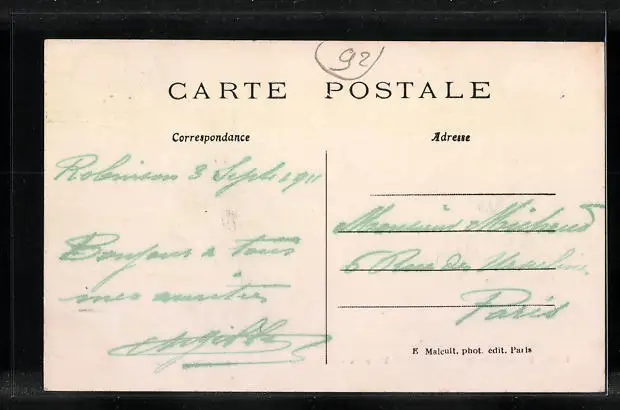 92
CARTE POSTALE
Correspondance
Adresse
Robinson 3 Sept 1911
Bonjour à tous
mes amitiés
Monsieur Michaud
6 Rue des Ursulines
Paris
E Malcuit, phot. édit. Paris